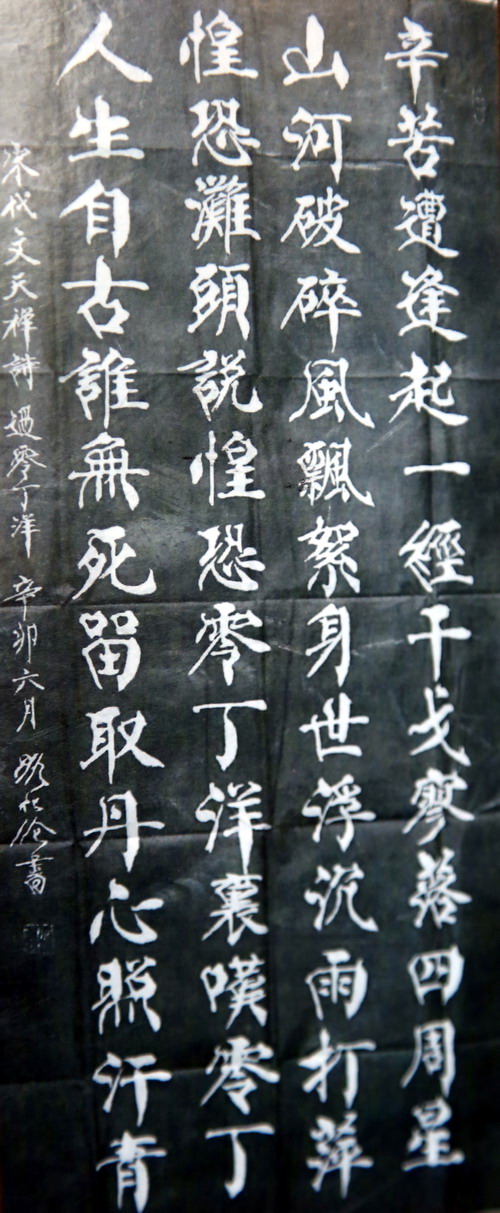 辛苦遭逢起一經干戈寥落四周星
山河破碎風飄絮身世浮沉雨打萍
惶恐灘頭說惶恐零丁洋裏嘆零丁
人生自古誰無死留取丹心照汗青
宋代文天祥詩過零丁洋 辛卯六月 書